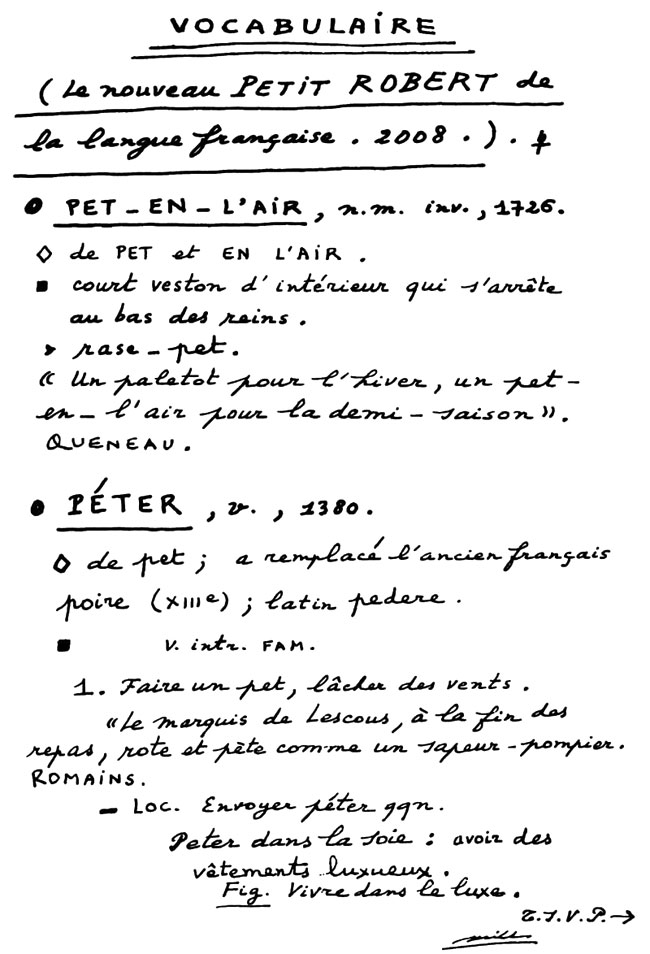 VOCABULAIRE
(Le nouveau PETIT ROBERT de
la langue française. 2008.).
• PET-EN-L'AIR, n.m. inv., 1726.
◇ de PET et EN L'AIR.
■ court veston d'intérieur qui s'arrête
au bas des reins.
➤ rase-pet.
« Un paletot pour l'hiver, un pet-
en-l'air pour la demi-saison ».
QUENEAU.
• PÉTER, v., 1380.
◇ de pet ; a remplacé l'ancien français
poire (XIIIe) ; latin pedere.
■ V. intr. FAM.
1. Faire un pet, lâcher des vents.
« Le marquis de Lescous, à la fin des
repas, rote et pète comme un sapeur-pompier.
ROMAINS.
— Loc. Envoyer péter qqn.
Peter dans la soie : avoir des
vêtements luxueux.
Fig. Vivre dans le luxe.
T.S.V.P. →